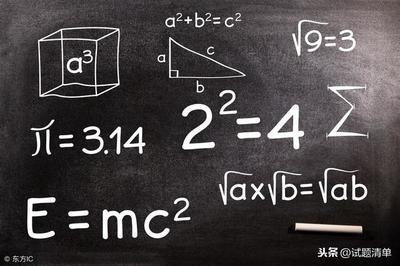 a²+b²=c²
√9=3
a³
a
c
b
π=3.14
2²=4
∑
√a×√b=√ab
E=mc²
© 东方IC
头条@试题清单